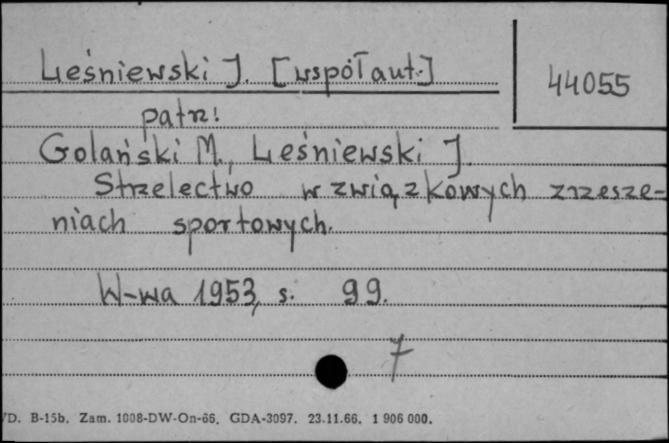 Leśniewski J. [współaut.]
44055
patrz!
Golański M., Leśniewski J.
Strzelectwo w związkowych zrzesze-
niach sportowych.
W-wa 1953, s. 99.
7
VD. B-15b. Zam. 1008-DW-On-66. GDA-3097. 23.11.66. 1 906 000.